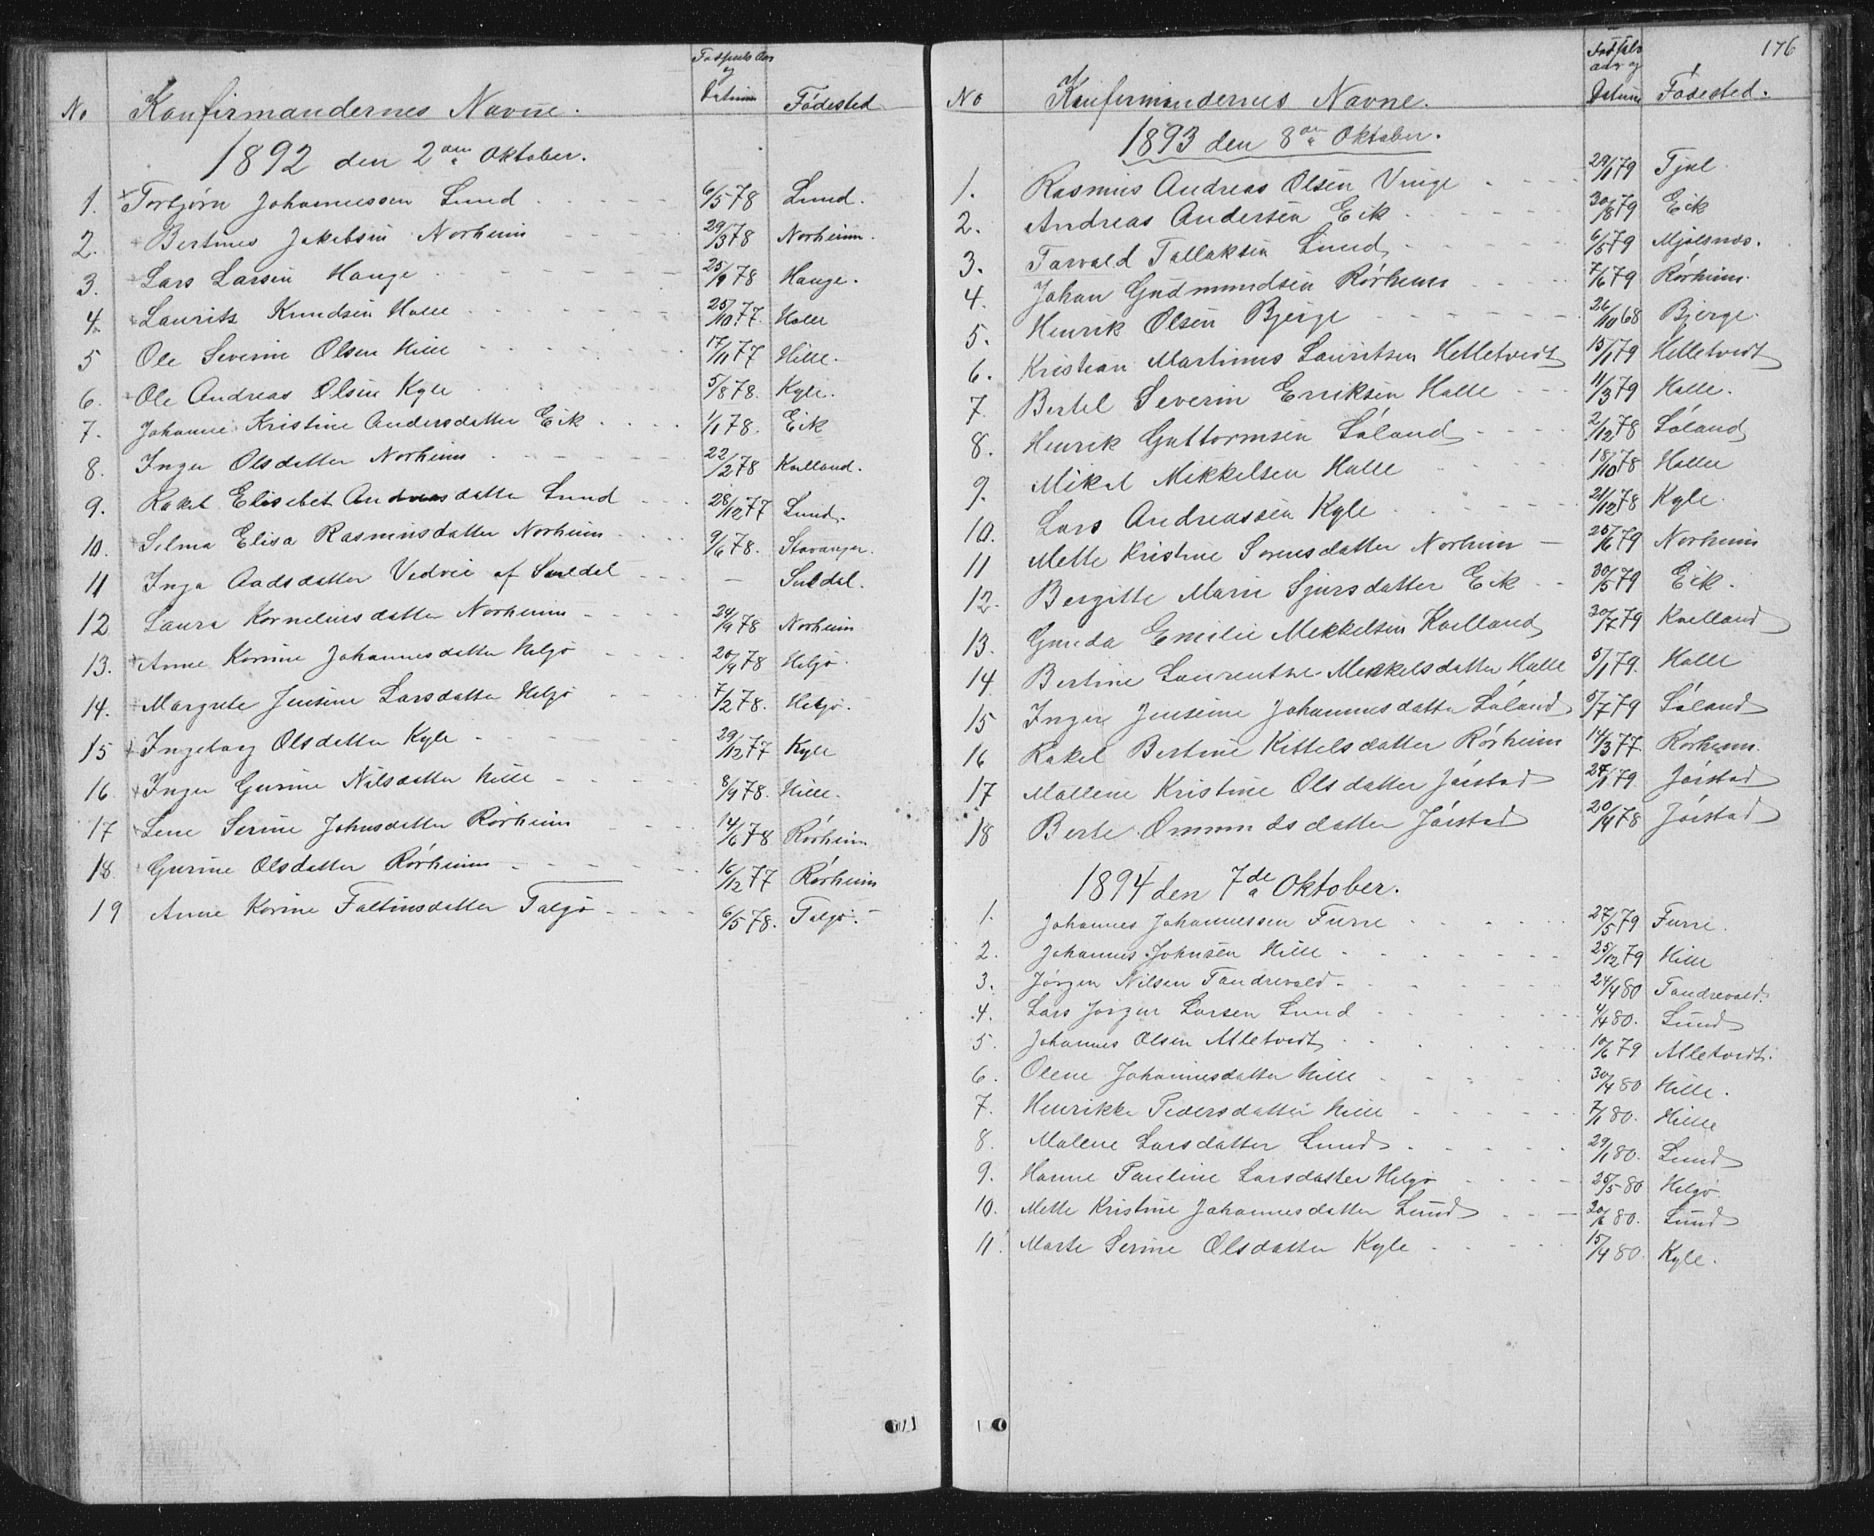 No Konfirmandernes Navne. Fødselsaar og Datum Fødested
1892 den 2den Oktober.
1. Torbjørn Johannessen Lund 6/5 78 Lund.
2. Bertines Jakobsen Norheim 29/3 78 Norheim.
3. Lars Larsen Hauge 25/9 78 Hauge.
4. Laurits Knudsen Halle 25/10 77. Halle
5 Ole Severin Olsen Hille 17/11 77 Hille.
6. Ole Andreas Olsen Kyle 5/8 78. Kyle.
7. Johanne Kristine Andersdatter Eik 1/1 78. Eik
8. Inger Olsdatter Norheim 22/2 78 Kvelland.
9. Rakel Elisebet Andreasdatter Lund 28/12 77 Lund.
10. Selma Elisa Rasmusdatter Norheim 9/6 78. Stavanger.
11 Inga Aadsdatter Vedvie af Suldal — Suldal.
12 Laura Korneliusdatter Norheim 24/9 78 Norheim
13. Anne Korine Johannesdatter Helgø 20/9 78 Helgø.
14. Margrete Jensine Larsdatter Helgø 7/2 78. Helgø.
15 Ingeborg Olsdatter Kyle 29/12 77 Kyle
16. Inger Gurine Nilsdatter Hille 8/9 78. Hille.
17 Lene Serine Johnsdatter Rørheim 14/6 78 Rørheim
18. Gurine Olsdatter Rørheim 16/12 77 Rørheim
19 Anne Korine Faltinsdatter Talgø 6/5 78. Talgø.
176
No Konfirmandernes Navne. Fødselsaar og Datum Fødested.
1893 den 8de Oktober.
1. Rasmus Andreas Olsen Vinge 29/1 79 Tjul.
2. Andreas Andersen Eik 30/8 79 Eik
3. Torvald Tallaksen Lund 6/5 79 Mjølsnes.
4. Johan Gudmundsen Rørheim 7/6 79 Rørheim.
5. Henrik Olsen Bjerge 26/10 68 Bjerge.
6. Kristian Martinus Lauritsen Helletvedt 15/1 79 Helletvedt
7. Bertel Severin Eriksen Halle 11/3 79 Halle.
8. Henrik Guttormsen Løland 2/12 78 Løland
9. Mikal Mikkelsen Halle 18/10 78 Halle
10. Lars Andreassen Kyle 21/12 78 Kyle.
11 Mette Kristine Sørensdatter Norheim 25/6 79 Norheim
12. Bergitte Marie Sjursdatter Eik 30/5 79 Eik.
13. Gunda Emilie Mikkelsen Kvelland 30/7 79 Kvelland
14 Bertine Laurentse Mikkelsdatter Halle 5/1 79. Halle
15 Inger Jensine Johannesdatter Løland 5/7 79 Løland
16 Rakel Bertine Kittelsdatter Rørheim 14/3 77. Rørheim.
17 Mallene Kristine Olsdatter Jøistad 24/1 79. Jøistad
18 Berte Ommundsdatter Jøistad 20/9 78 Jøistad
1894 den 7de Oktober.
1. Johannes Johannessen Furre 27/5 79 Furre.
2. Johannes Johnsen Hille 25/12 79 Hille
3. Jørgen Nilsen Tandrevald 24/4 80 Tandrevald.
4. Lars Jørgen Larsen Lund 4/4 80. Lund
5. Johannes Olsen Alletvedt 10/6 79 Alletvedt.
6. Olene Johannesdatter Hille 30/4 80 Hille.
7. Henrikke Pedersdatter Hille 7/1 80. Hille
8. Malene Larsdatter Lund 29/1 80. Lund
9. Hanne Pauline Larsdatter Helgø 25/5 80 Helgø.
10. Mette Kristine Johannesdatter Lund 20/6 80. Lund
11. Marte Serine Olsdatter Kyle 15/4 80. Kyle.